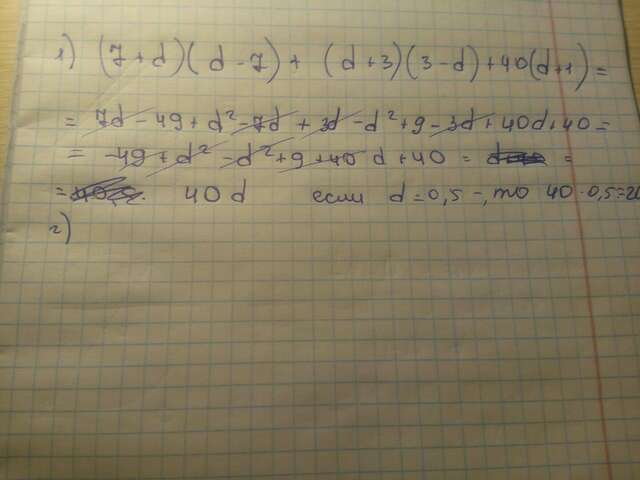 1) (7+d)(d-7)+(d+3)(3-d)+40(d+1)=
= 7d-49+d²-7d+3d-d²+9-3d+40d+40=
= -49+d²-d²+9+40d+40= =
= 40d если d=0,5-, то 40·0,5=20
2)